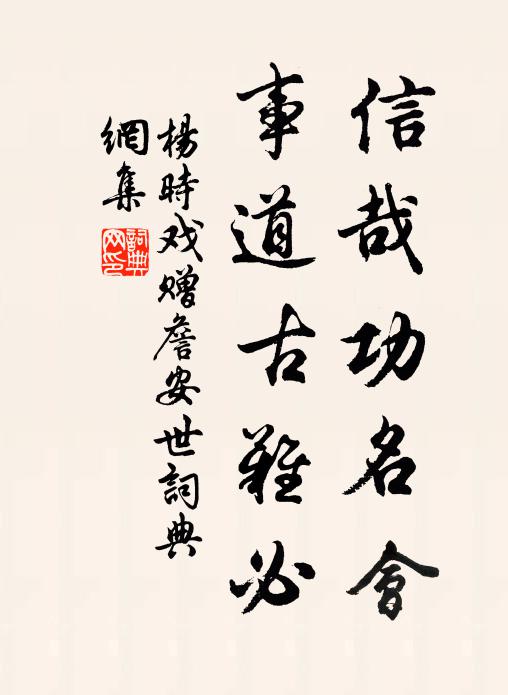 信哉功名會
事道古難必
楊時戏赠詹安世詞典
網集
詞典
网印